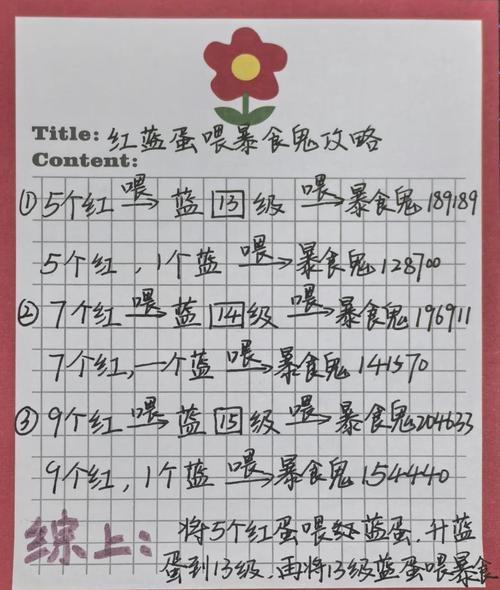 Title: 红蓝蛋喂暴食鬼攻略
Content:
①5个红 喂→ 蓝 13 级 喂→ 暴食鬼 189189
5个红, 1个蓝 喂→ 暴食鬼 128700
②7个红 喂→ 蓝 14 级 喂→ 暴食鬼 196911
7个红, 一个蓝 喂→ 暴食鬼 141570
③9个红 喂→ 蓝 15 级 喂→ 暴食鬼 204633
9个红, 1个蓝 喂→ 暴食鬼 154440
综上: 将5个红蛋喂给蓝蛋, 升蓝
蛋到13级, 再将13级蓝蛋喂暴食